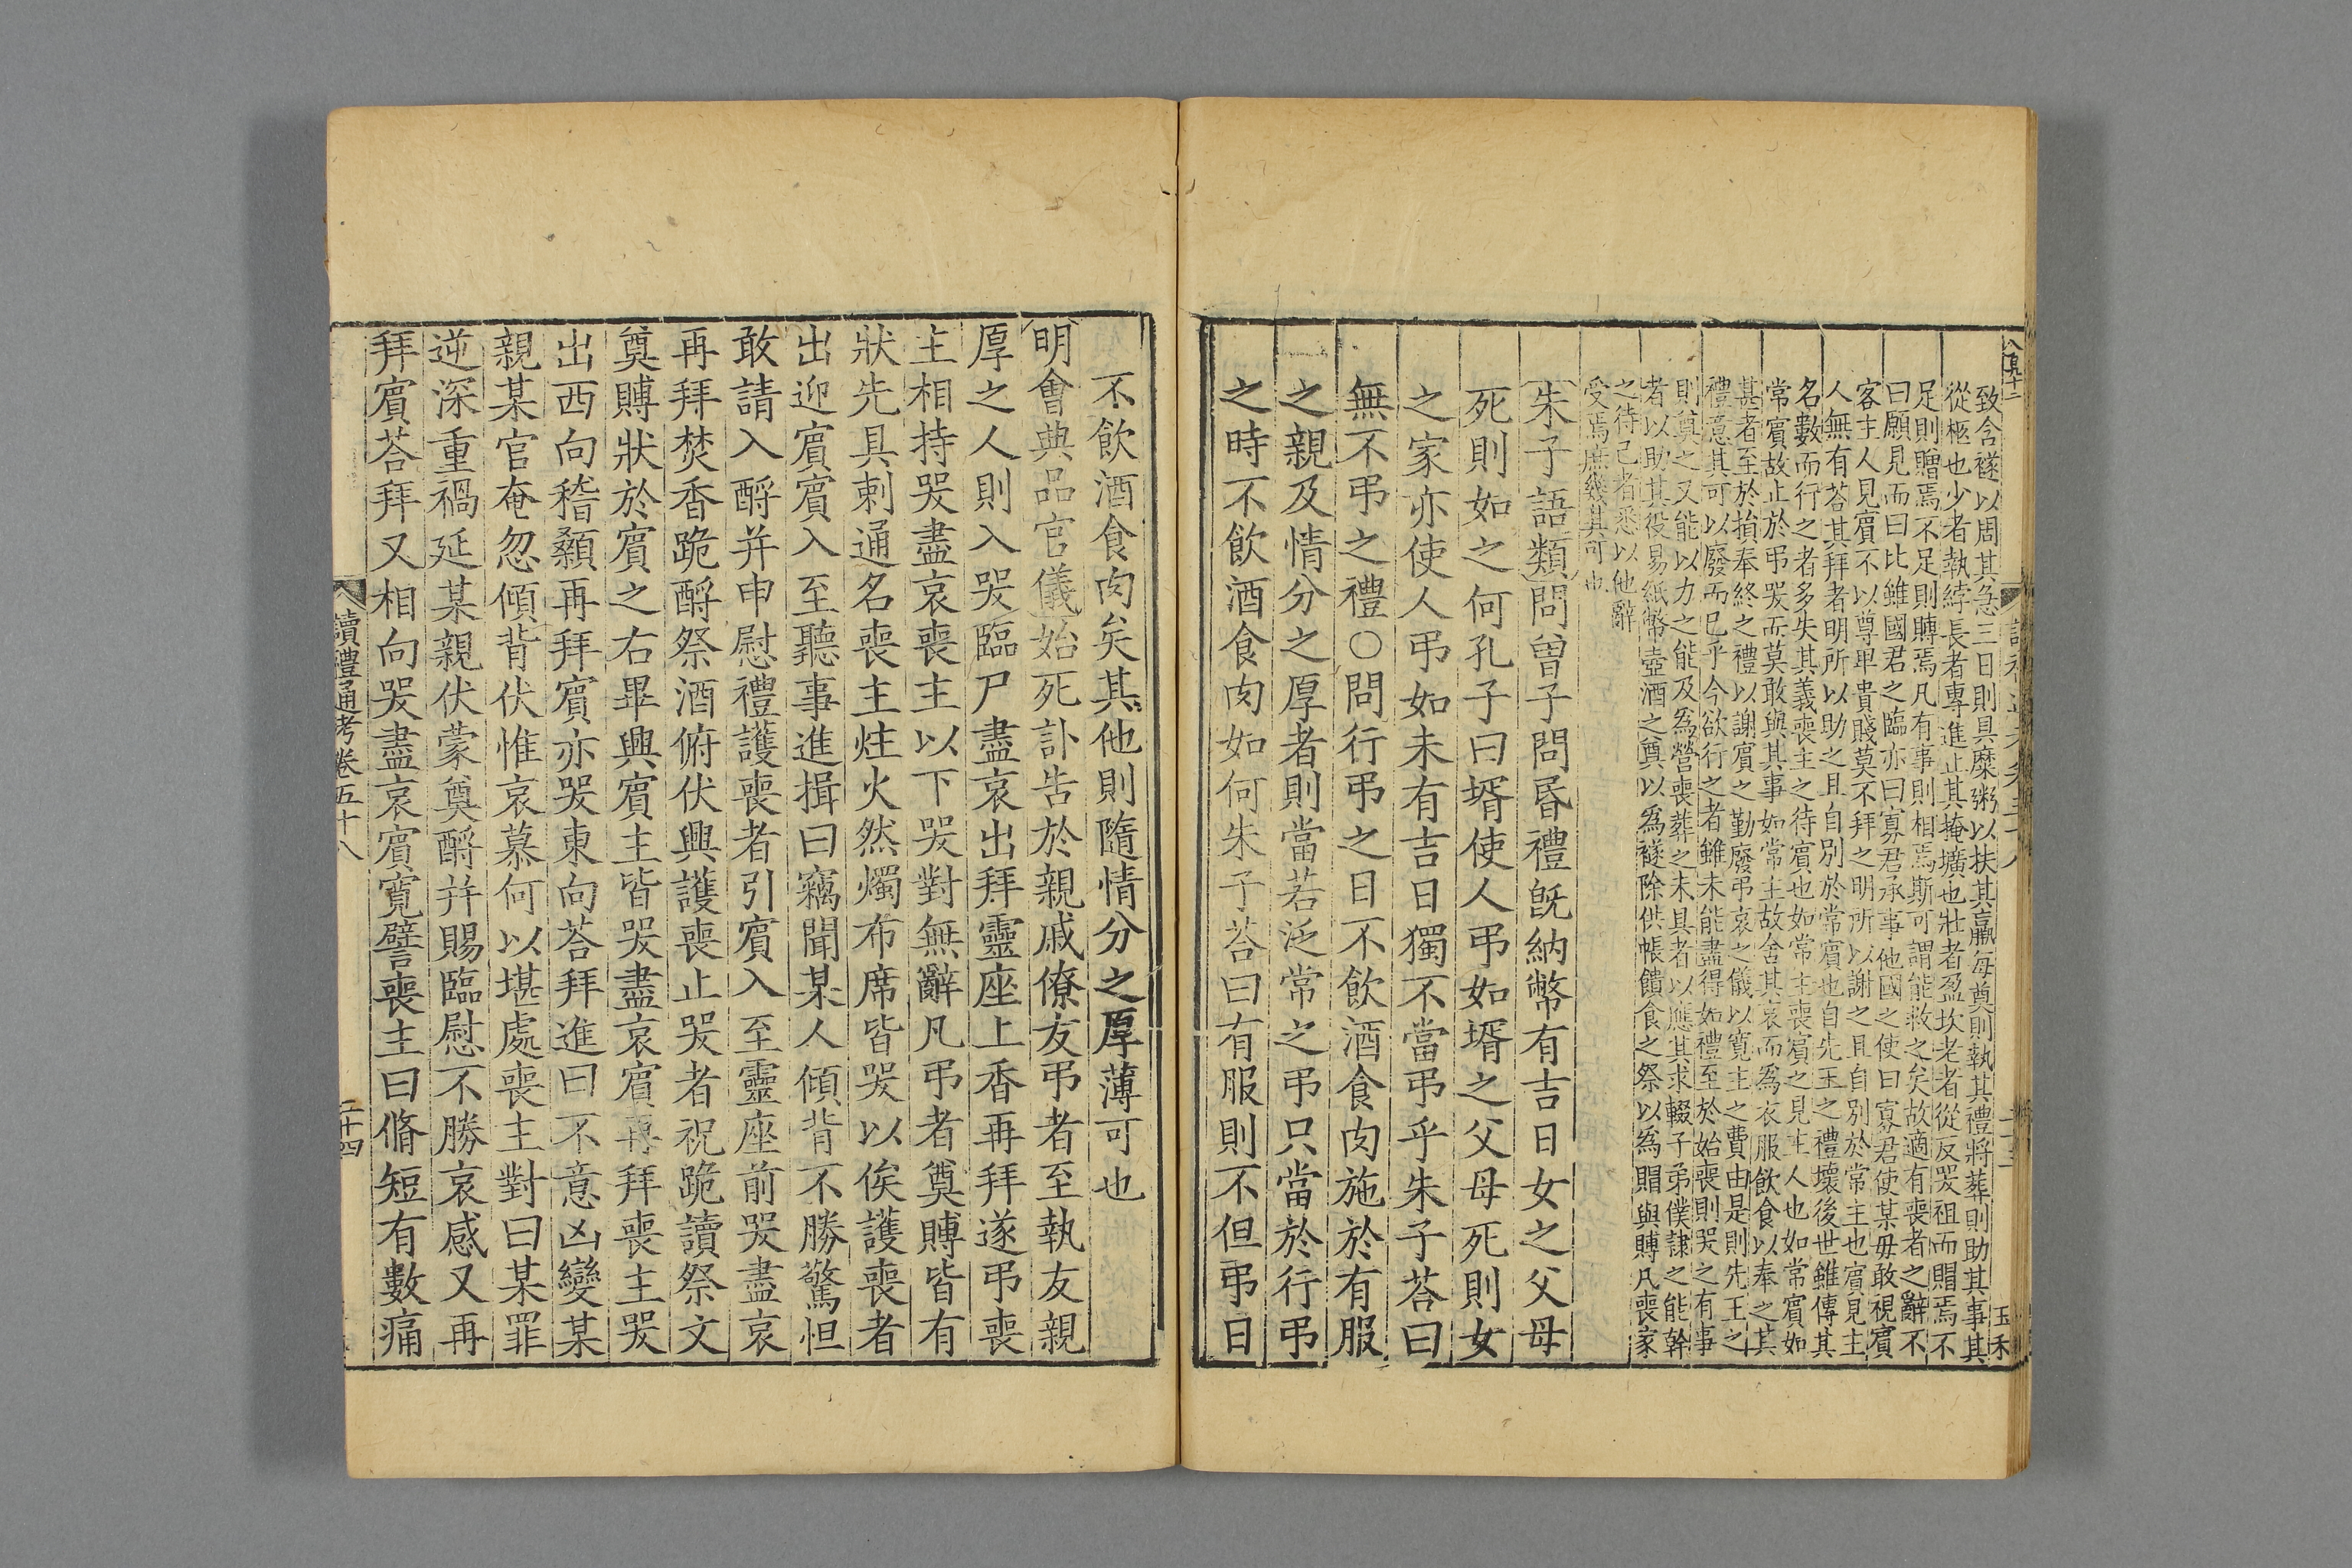 致含襚以周其急三日則具糜粥以扶其羸每奠則執其禮將葬則助其事其
從柩也少者執紼長者專進止其掩壙也壯者盈坎老者從反哭祖而賵焉不
足則贈焉不足則賻焉凡有事則相焉斯可謂能救之矣故適有喪者之辭不
曰願見而曰比雖國君之臨亦曰寡君承事他國之使曰寡君使某毋敢視賓
客主人見賓不以尊卑貴賤莫不拜之明所以謝之且自別於常主也賓見主
人無有荅其拜者明所以助之且自別於常賓也自先王之禮壞後世雖傳其
名數而行之者多失其義喪主之待賓也如常主喪賓之見主人也如常賓如
常賓故止於弔哭而莫敢與其事如常主故舍其哀而為衣服飲食以奉之其
甚者至於損奉終之禮以謝賓之勤廢弔哀之儀以寛主之費由是則先王之
禮意其可以廢而已乎今欲行之者雖未能盡得如禮至於始喪則哭之有事
則奠之又能以力之能及為營喪葬之未具者以應其求輟子弟僕隷之能幹
者以助其役易紙幣壺酒之奠以為襚除供帳饋食之祭以為賵與賻凡喪家
之待己者悉以他辭
受焉庶幾其可也
朱子語類問曾子問昏禮旣納幣有吉日女之父母
死則如之何孔子曰壻使人弔如壻之父母死則女
之家亦使人弔如未有吉日獨不當弔乎朱子荅曰
無不弔之禮○問行弔之日不飲酒食肉施於有服
之親及情分之厚者則當若泛常之弔只當於行弔
之時不飲酒食肉如何朱子荅曰有服則不但弔日
不飲酒食肉矣其他則隨情分之厚薄可也
明會典品官儀始死訃告於親戚僚友弔者至執友親
厚之人則入哭臨尸盡哀出拜靈座上香再拜遂弔喪
主相持哭盡哀喪主以下哭對無辭凡弔者奠賻皆有
狀先具刺通名喪主炷火然燭布席皆哭以俟護喪者
出迎賓賓入至聽事進揖曰竊聞某人傾背不勝驚怛
敢請入酹并申慰禮護喪者引賓入至靈座前哭盡哀
再拜焚香跪酹祭酒俯伏興護喪止哭者祝跪讀祭文
奠賻狀於賓之右畢興賓主皆哭盡哀賓再拜喪主哭
出西向稽顙再拜賓亦哭東向荅拜進曰不意凶變某
親某官奄忽傾背伏惟哀慕何以堪處喪主對曰某罪
逆深重禍延某親伏蒙奠酹并賜臨慰不勝哀感又再
拜賓荅拜又相向哭盡哀賓寬譬喪主曰脩短有數痛
讀禮通考卷五十八
二十四